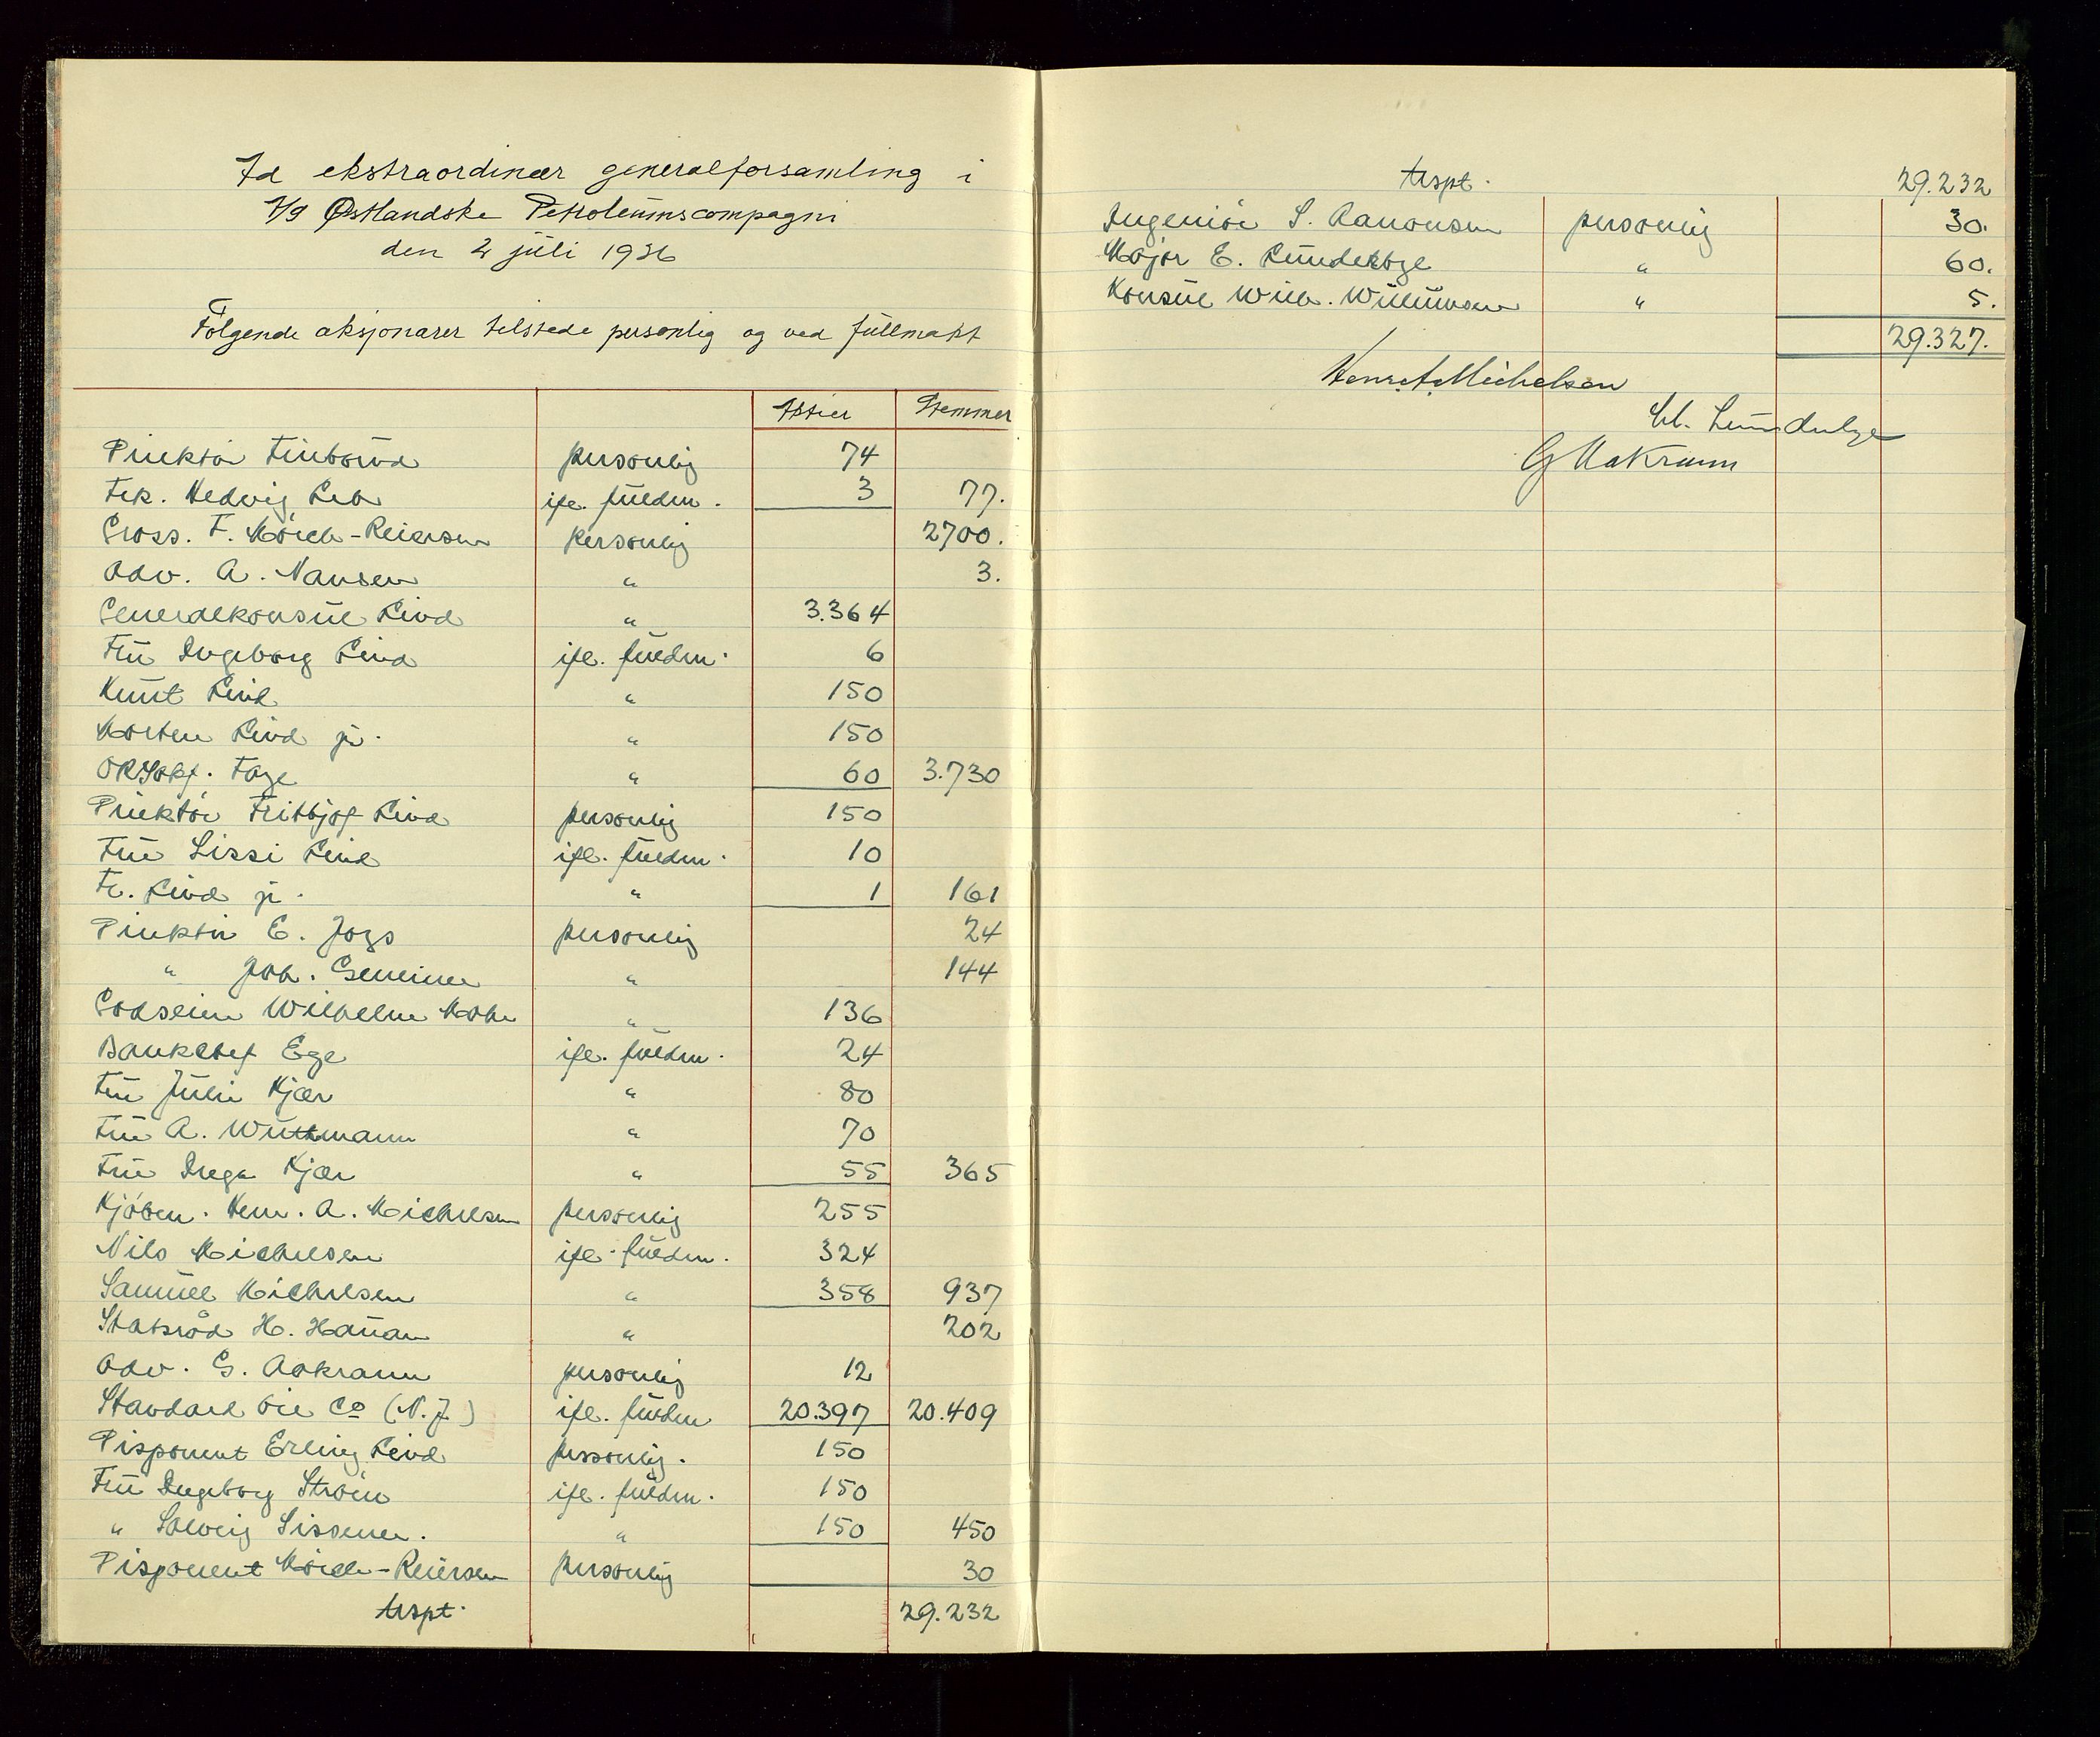 Id ekstraordinær generalforsamling i
A/S Østlandske Petroleumscompagni
den 2 juli 1936
Følgende aksjonærer tilstede personlig og ved fullmakt
Aktier Stemmer
Direktør Finborud personlig 74
Frk. Hedvig Lie ifl. fuldm. 3 77.
Gross. F. Mørch-Reiersen personlig 2700.
Adv. A. Nansen " 3.
Generalkonsul Lind " 3.364
Fru Ingeborg Lind ifl. fuldm. 6
Knut Lind " 150
Morten Lind jr. " 150
ORSakf. Fage " 60 3.730
Direktør Fritbjof Lind personlig 150
Fru Lissi Lind ifl. fuldm. 10
Fr. Lind jr. " 1 161
Direktør E. Joys personlig 24
" Joh. Gmeiner " 144
Godseier Wilhelm Mohr " 136
Bankchef Ege ifl. fuldm. 24
Fru Juli Kjær " 80
Fru A. Wittmann " 70
Fru Inga Kjær " 55 365
Kjøbm. Henr. A. Michelsen personlig 255
Nils Michelsen ifl. fuldm. 324
Samuel Michelsen " 358 937
Statsråd H. Hauan " 202
Adv. G. Aakrann personlig 12
Standard Oil Co (N.J.) ifl. fuldm 20.397 20.409
Disponent Erling Lind personlig. 150
Fru Ingeborg Strøm ifl. fuldm. 150
" Solveig Sissener. " 150 450
Disponent Mørch-Reiersen personlig 30
trspt. 29.232
trspt. 29.232
Ingeniør S. Aanonsen personlig 30.
Major E. Lundekøge " 60.
Konsul Wilh. Willumsen " 5.
29.327.
Henr. A. Michelsen
G Aakrann